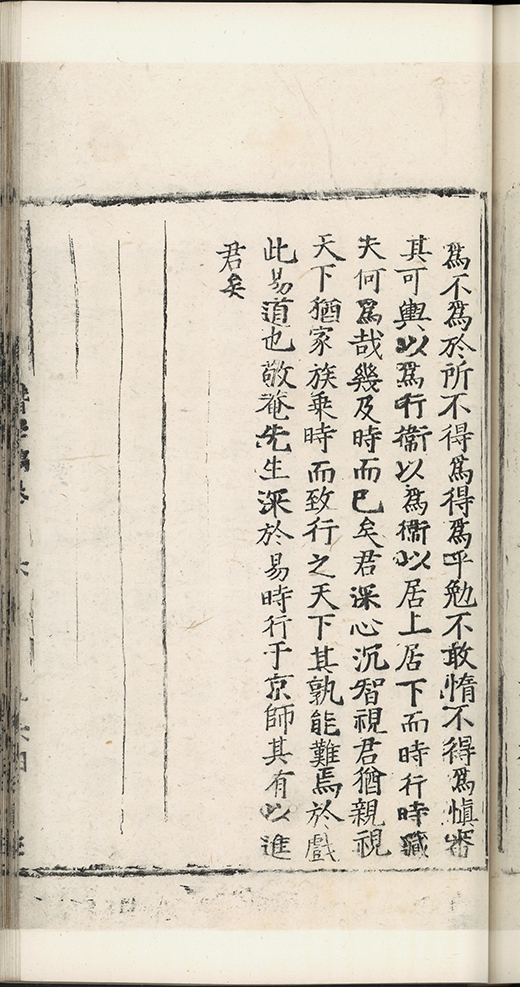 爲不爲於所不得爲得爲乎勉不敢惰不得爲慎審
其可輿以爲行衛以爲衛以居上居下而時行時藏
夫何爲哉幾及時而已矣君深心沉智視君猶親視
天下猶家族乘時而致行之天下其孰能難焉於戲
此易道也敬菴先生深於易時行于京師其有以進
君矣